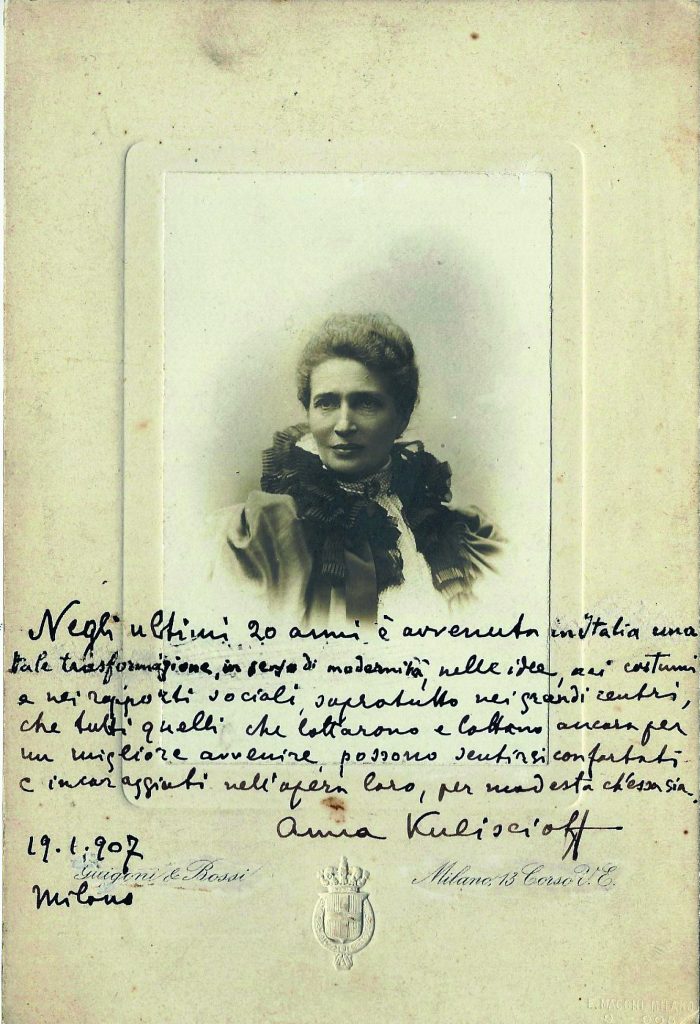 Negli ultimi 20 anni è avvenuta in Italia una
tale trasformazione, in senso di modernità, nelle idee, nei costumi
e nei rapporti sociali, sopratutto nei grandi centri,
che tutti quelli che lottarono e lottano ancora per
un migliore avvenire, possono sentirsi confortati
e incoraggiati nell'opera loro, per modesta ch'essa sia.
Anna Kuliscioff
19.1.907
Guigoni & Bossi Milano, 13 Corso V.E.
Milano
MILANO